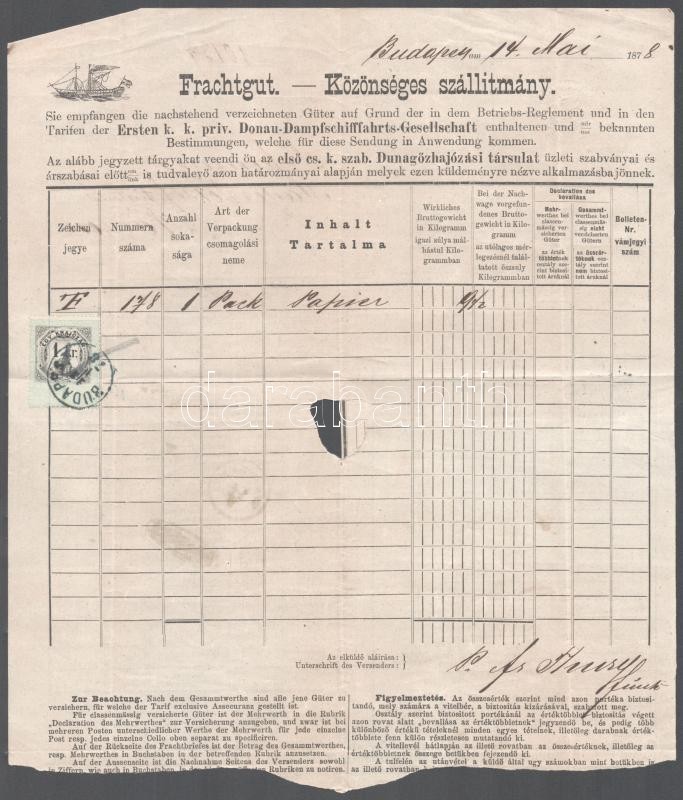 Budapest am 14. Mai 1878
Frachtgut. — Közönséges szállitmány.
Sie empfangen die nachstehend verzeichneten Güter auf Grund der in dem Betriebs-Reglement und in den
Tarifen der Ersten k. k. priv. Donau-Dampfschifffahrts-Gesellschaft enthaltenen und mir/uns bekannten
Bestimmungen, welche für diese Sendung in Anwendung kommen.
Az alább jegyzett tárgyakat veendi ön az első cs. k. szab. Dunagőzhajózási társulat üzleti szabványai és
árszabásai előtt is tudvalevő azon határozmányai alapján melyek ezen küldeményre nézve alkalmazásba jönnek.
Zeichen
jegye
Nummern
száma
Anzahl
soka-
sága
Art der
Verpackung
csomagolási
neme
Inhalt
Tartalma
Wirkliches
Bruttogewicht
in Kilogramm
igazi súlya mál-
hástul Kilo-
grammban
Bei der Nach-
wage vorgefun-
denes Brutto-
gewicht in Kilo-
gramm
az utólagos mér-
legezésnél talál-
tatott összsuly
Kilogrammban
Declaration des
bevallása
Mehr-
werthes bei
classen-
mässig ver-
sicherten
Güter
az érték
többletnek
osztály sze-
rint biztosi-
tott áruknál
Gesammt-
werthes bei
classenmäs-
sig nicht
versicherten
Gütern
az összér-
téknek osz-
tály szerint
nem biztosi-
tott áruknál
Bolleten-
Nr.
vámjegyi
szám
F 178 1 Pack Papier 9½
1 kr.
BUDAP
darabanth
Az elküldő aláirása:
Unterschrift des Versenders:
Zur Beachtung. Nach dem Gesammtwerthe sind alle jene Güter zu
versichern, für welche der Tarif exclusive Assecuranz gestellt ist.
Für classenmässig versicherte Güter ist der Mehrwerth in die Rubrik
„Declaration des Mehrwerthes" zur Versicherung anzugeben, und zwar ist bei
mehreren Posten unterschiedlicher Werthe der Mehrwerth für jede einzelne
Post resp. jedes einzelne Collo oben separat zu specificiren.
Auf der Rückseite des Frachtbriefes ist der Betrag des Gesammtwerthes,
resp. Mehrwerthes in Buchstaben in der betreffenden Rubrik anzusetzen.
Auf der Aussenseite ist die Nachnahme Seitens des Versenders sowohl
in Ziffern, wie auch in Buchstaben in den Rubriken zu notiren.
Figyelmeztetés. Az összesérték szerint mind azon portéka biztosi-
tandó, mely számára a vitelbér, a biztositás kizárásával, szabatott meg.
Osztály szerint biztositott portékánál az értéktöbbletnek biztositás végett
azon rovat alatt „bevallása az értéktöbbletnek" jegyzendő be, és pedig több
különböző értékű tételeknél minden egyes tételnek, illetőleg darabnak érték-
többlete fenn külön részletesen mutatandó ki.
A vitellevél hátlapján az illető rovatban az összeértéknek, illetőleg az
értéktöbbletnek összege betükben fejezendő ki.
A tulfelén az utánvétel a küldő által ugy számokban mint betükben is
az illető rovatban